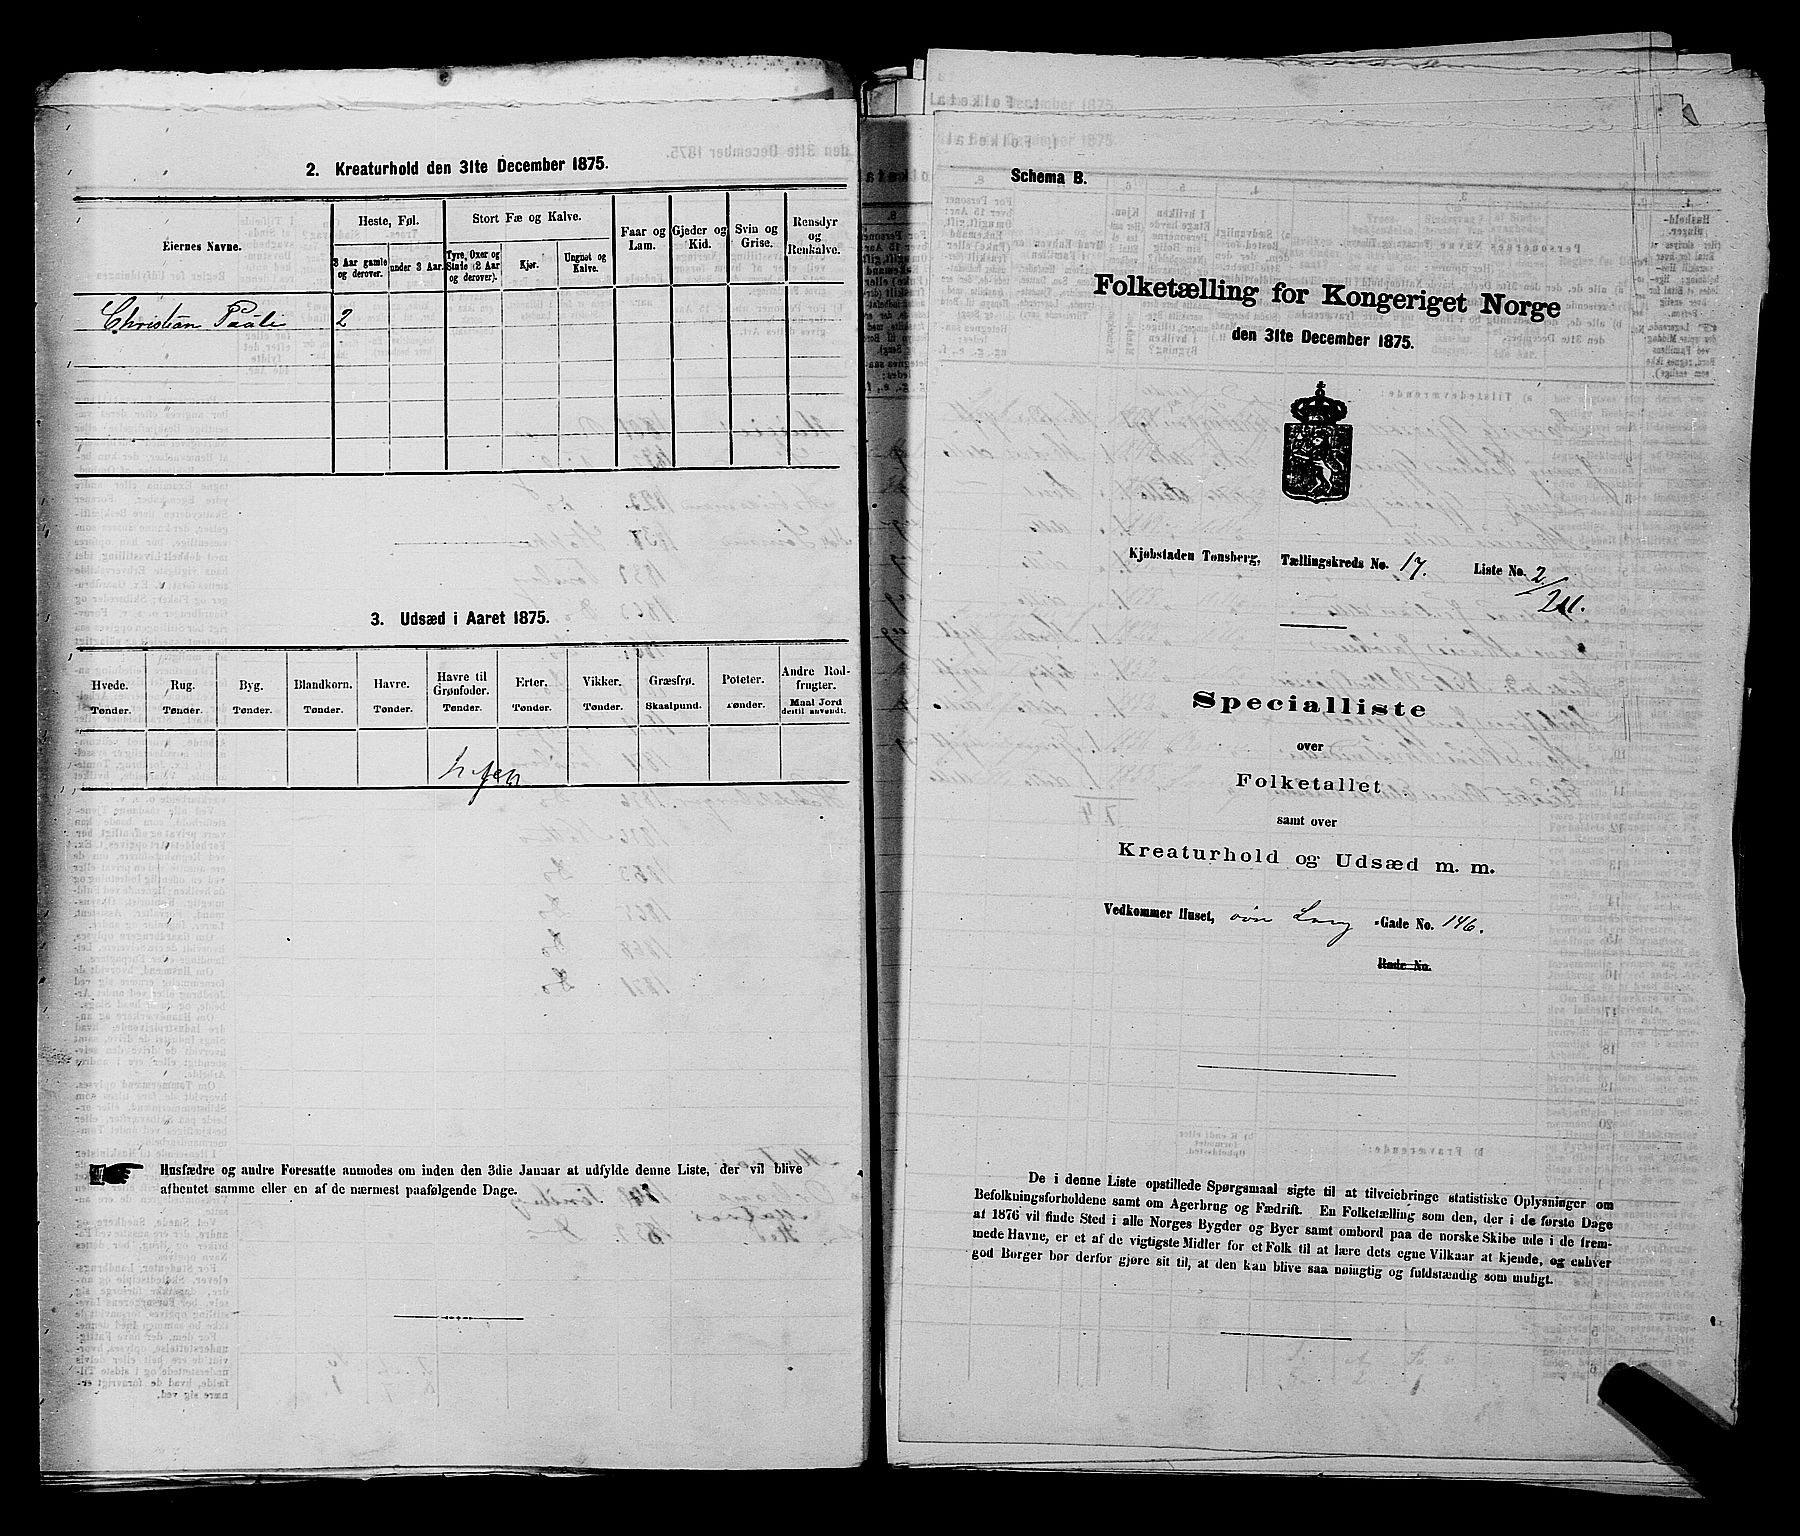 2. Kreaturhold den 31te December 1875.
Eiernes Navne.
Heste, Føl.
Stort Fæ og Kalve.
Faar og Lam.
Gjeder og Kid.
Svin og Grise.
Rensdyr og Renkalve.
3 Aar gamle og derover.
under 3 Aar.
Tyre, Oxer og Stude (2 Aar og derover).
Kjør.
Ungnøt og Kalve.
Christian Paali 2
3. Udsæd i Aaret 1875.
Hvede. Rug. Byg. Blandkorn. Havre. Havre til Grønfoder. Erter. Vikker. Græsfrø. Poteter. Andre Rodfrugter.
Tønder. Tønder. Tønder. Tønder. Tønder. Tønder. Tønder. Tønder. Skaalpund. Tønder. Maal Jord dertil anvendt.
Husfædre og andre Foresatte anmodes om inden den 3die Januar at udfylde denne Liste, der vil blive
afhentet samme eller en af de nærmest paafølgende Dage.
Schema B.
Folketælling for Kongeriget Norge
den 31te December 1875.
Kjøbstaden Tønsberg, Tællingskreds No. 17. Liste No. 2/
Specialliste
over
Folketallet
samt over
Kreaturhold og Udsæd m. m.
Vedkommer Huset, øvre Lang-Gade No. 146.
Rode No.
De i denne Liste opstillede Spørgsmaal sigte til at tilveiebringe statistiske Oplysninger om
Befolkningsforholdene samt om Agerbrug og Fædrift. En Folketælling som den, der i de første Dage
af 1876 vil finde Sted i alle Norges Bygder og Byer samt ombord paa de norske Skibe ude i de frem-
mede Havne, er et af de vigtigste Midler for et Folk til at lære dets egne Vilkaar at kjende, og enhver
god Borger bør derfor gjøre sit til, at den kan blive saa nøiagtig og fuldstændig som muligt.